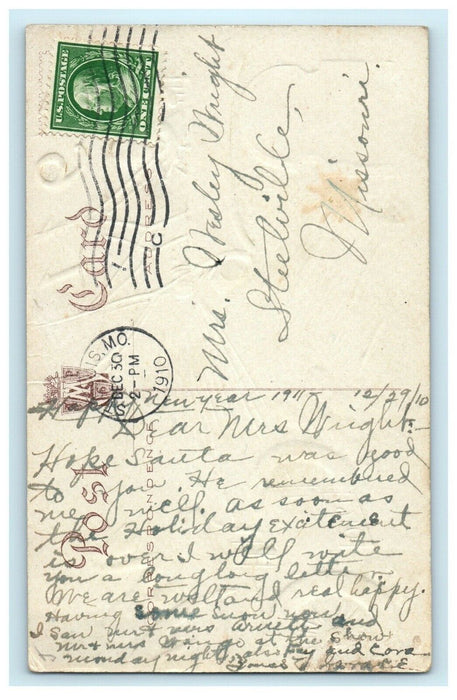 U.S. POSTAGE
ONE CENT
Post Card
ADDRESS
CORRESPONDENCE
IS, MO.
DEC 30
2-PM
1910
Mrs. Wesley Wright
Steelville,
Missouri.
Happy New year 1911 12/29/10
Dear Mrs Wright:
Hope Santa was good
to you. He remembered
me well. as soon as
the Holiday excitement
is over I will write
you a long long letter
We are well and real happy.
Having some snow now.
I saw Mr & Mrs and
Mr & Mrs at the Show
Monday night, also Fay and Cora
Yours